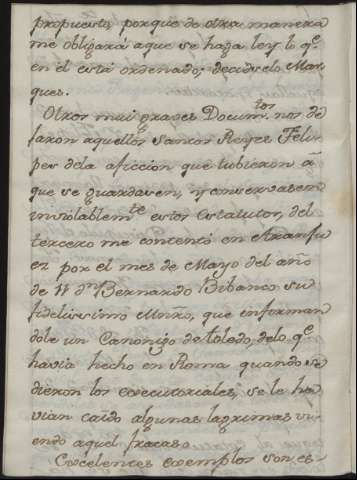 propuesto, porque de otra manera
me obligará a que se haga ley lo q.e
en el está ordenado; decidselo Mar
ques.
Otros mui graves Docum.tos nos de
jaron aquellos Santos Reyes Feli-
pes dela aficcion que tubieron á
que se guardasen, y conservasen
inviolablem.te estos estatutos, del
tercero me contentó en Aranju
ez por el mes de Mayo del año
de 11 d.n Bernardo Bibanco su
fidelissimo Muxo, que informan
dole un Canonigo de toledo, delo q.e
havia hecho en Roma quando
dieron los executoriales, se le ha
vian caido algunas lagrimas vi
endo aquel fracaso.
Excelentes exemplos son es-